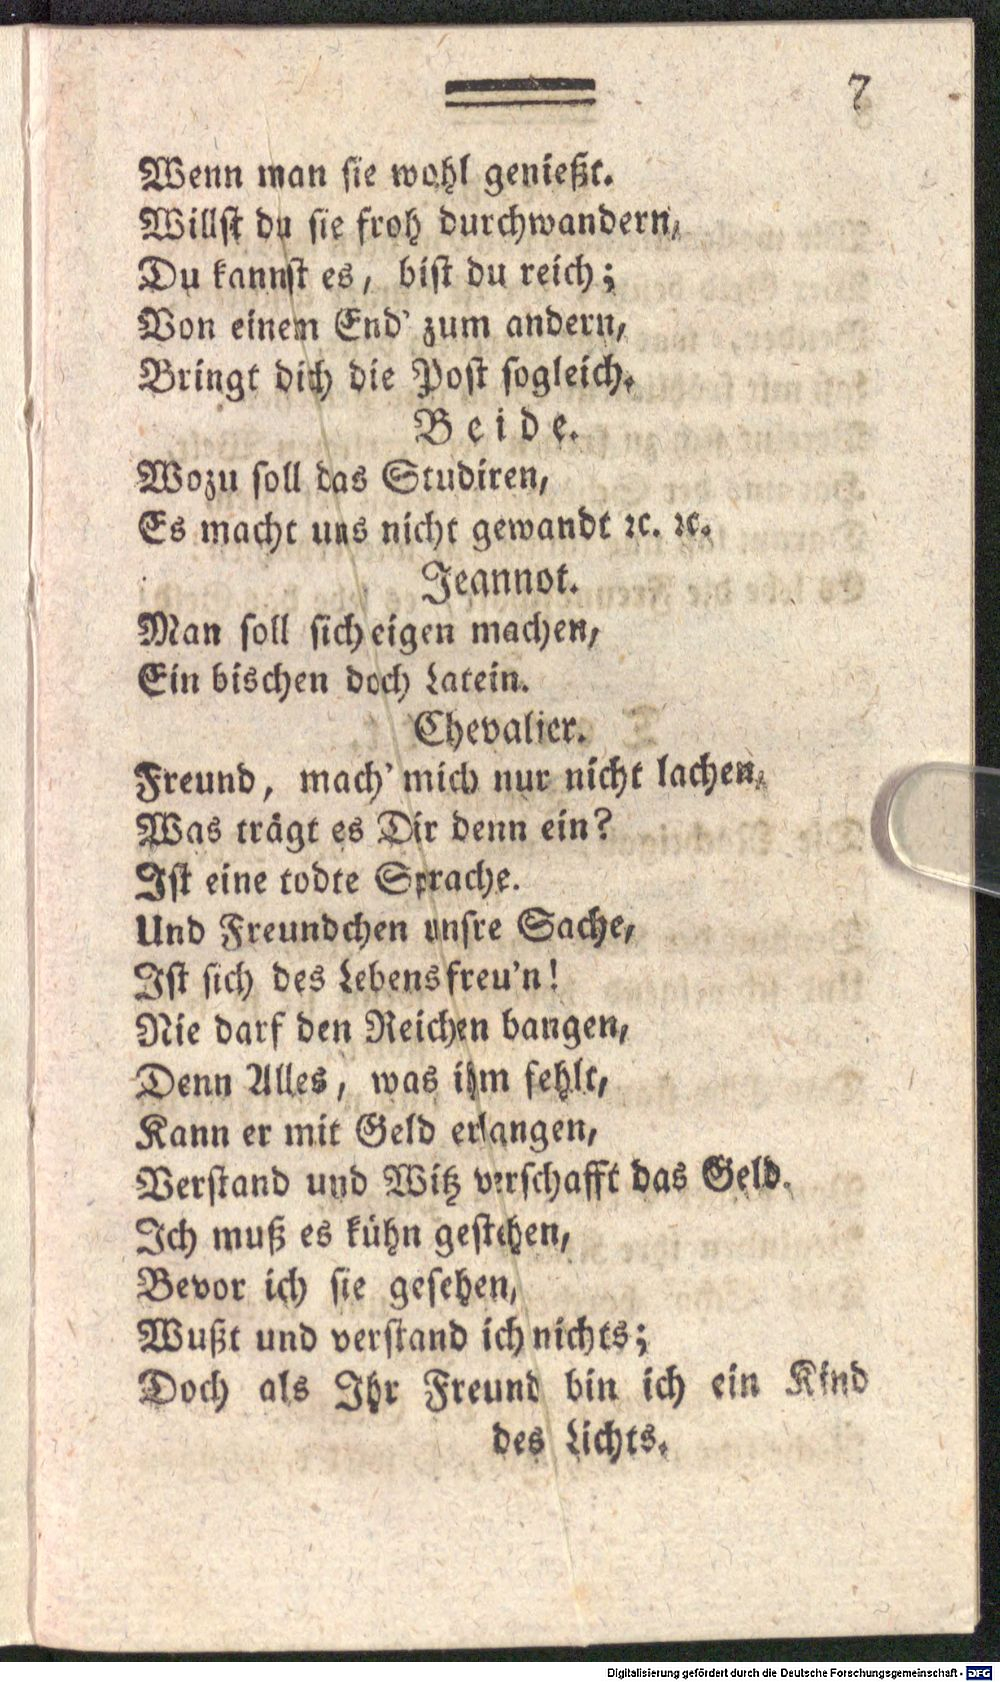 7
Wenn man sie wohl genießt.
Willst du sie froh durchwandern,
Du kannst es, bist du reich;
Von einem End' zum andern,
Bringt dich die Post sogleich.
Beide.
Wozu soll das Studiren,
Es macht uns nicht gewandt ꝛc. ꝛc.
Jeannot.
Man soll sich eigen machen,
Ein bischen doch Latein.
Chevalier.
Freund, mach' mich nur nicht lachen,
Was trägt es Dir denn ein?
Ist eine todte Sprache.
Und Freundchen unsre Sache,
Ist sich des Lebens freu'n!
Nie darf den Reichen bangen,
Denn Alles, was ihm fehlt,
Kann er mit Geld erlangen,
Verstand und Witz verschafft das Geld.
Ich muß es kühn gestehen,
Bevor ich sie gesehen,
Wußt und verstand ich nichts;
Doch als Ihr Freund bin ich ein Kind
des Lichts.
Digitalisierung gefördert durch die Deutsche Forschungsgemeinschaft - DFG